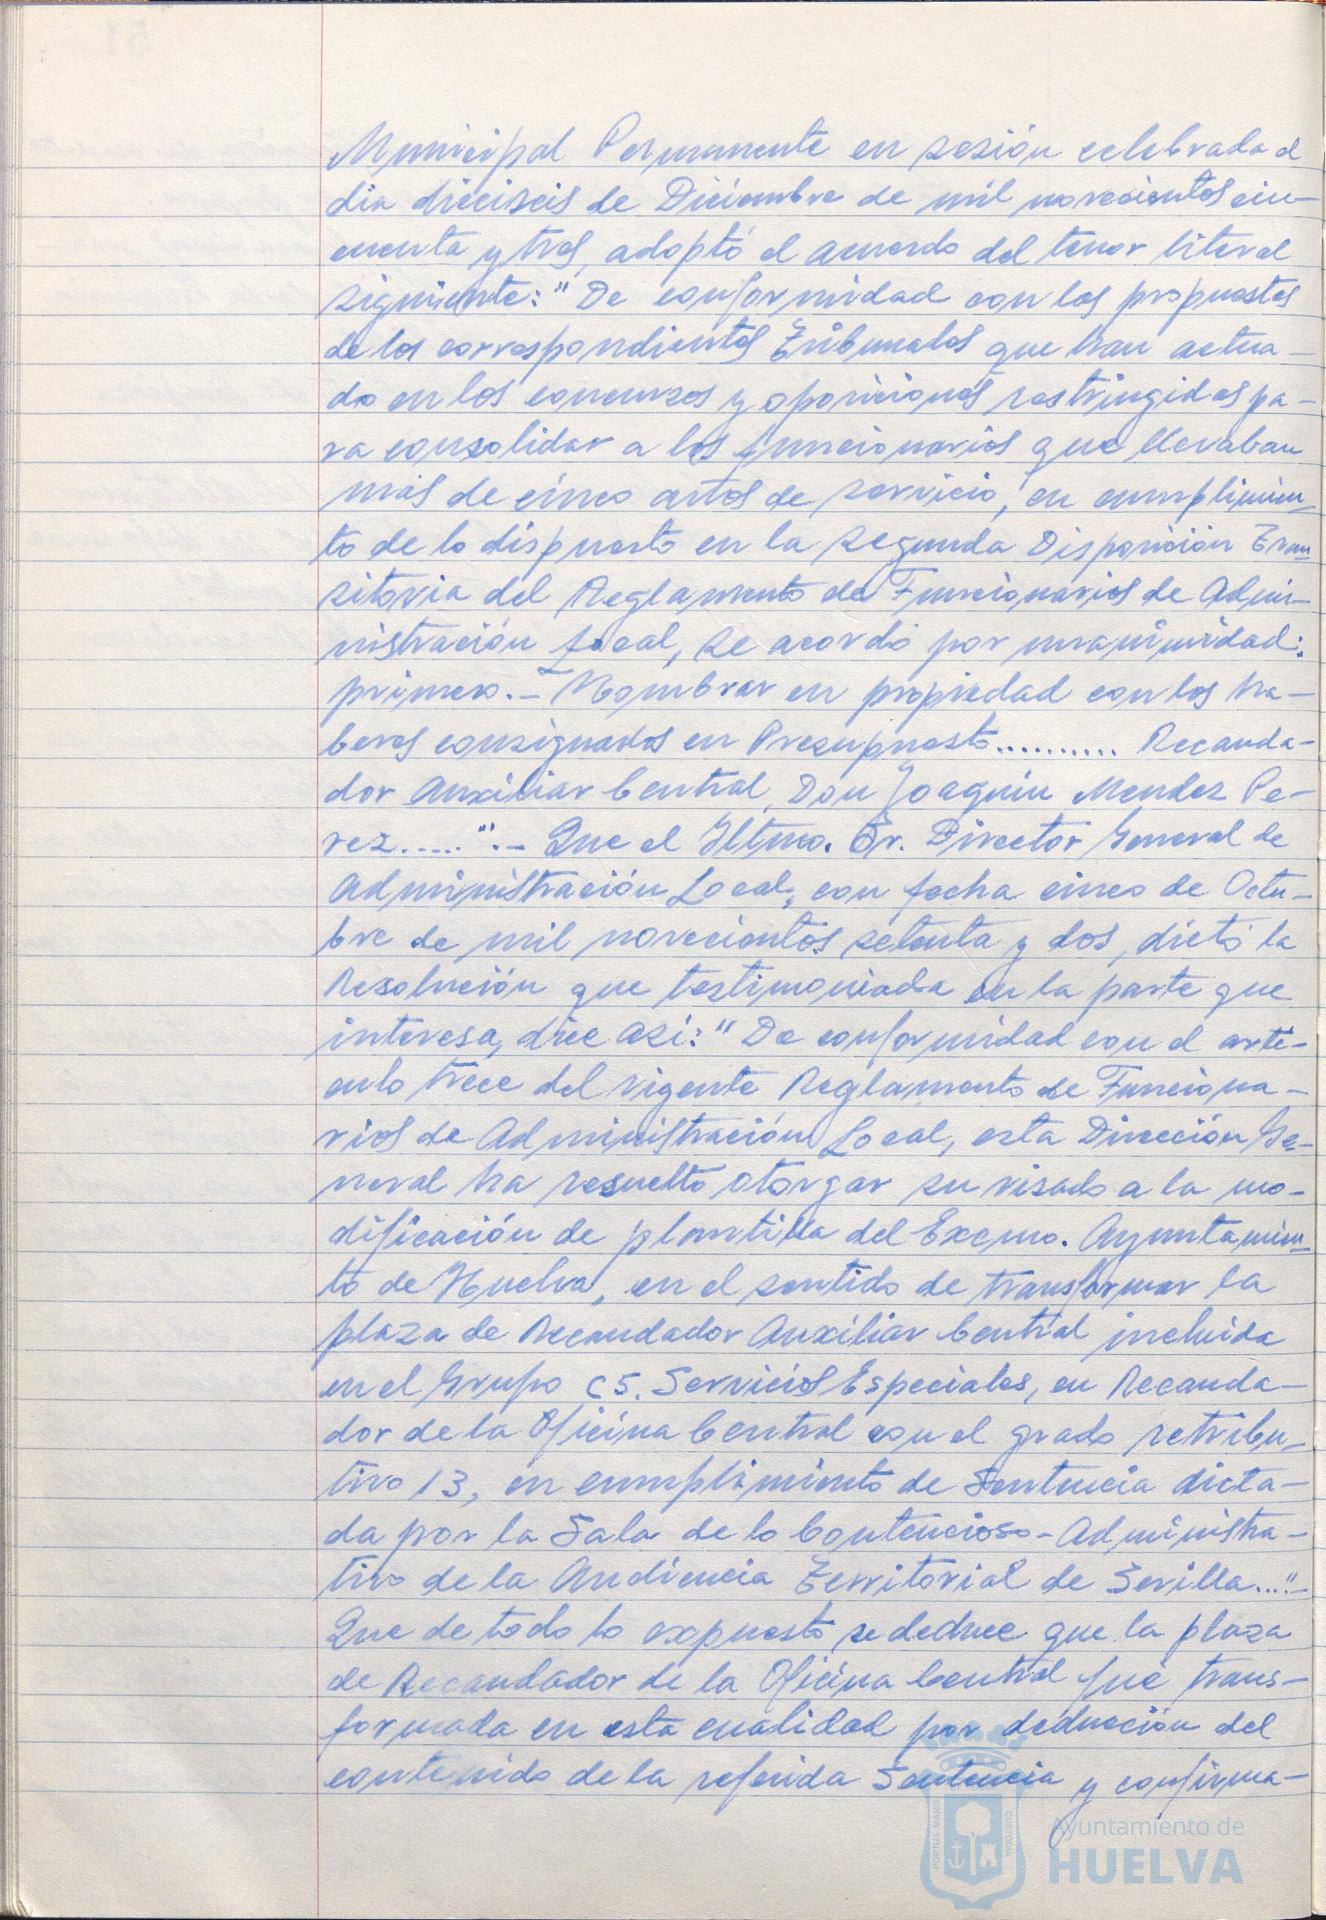 Municipal Permanente en sesión celebrada el
dia dieciseis de Diciembre de mil novecientos cin-
cuenta y tres, adoptó el acuerdo del tenor literal
siguiente: "De conformidad con las propuestas
de los correspondientes Tribunales que han actua-
do en los concursos y oposiciones restringidas pa-
ra consolidar a los funcionarios que llevaban
más de cinco años de servicio, en cumplimien-
to de lo dispuesto en la segunda Disposición Tran-
sitoria del Reglamento de Funcionarios de Admi-
nistración Local, se acordó por unanimidad:
primero.- Nombrar en propiedad con los ha-
beres consignados en Presupuesto.......... Recauda-
dor Auxiliar Central, Don Joaquín Mendez Pe-
rez.....".- Que el Iltmo. Sr. Director General de
Administración Local, con fecha cinco de Octu-
bre de mil novecientos setenta y dos, dictó la
Resolución que testimoniada en la parte que
interesa, dice así: "De conformidad con el artí-
culo trece del vigente Reglamento de Funciona-
rios de Administración Local, esta Dirección Ge-
neral ha resuelto otorgar su visado a la mo-
dificación de plantilla del Excmo. Ayuntamien-
to de Huelva, en el sentido de transformar la
plaza de Recaudador Auxiliar Central incluida
en el Grupo C5. Servicios Especiales, en Recauda-
dor de la Oficina Central con el grado retribu-
tivo 13, en cumplimiento de Sentencia dicta-
da por la Sala de lo Contencioso-Administra-
tivo de la Audiencia Territorial de Sevilla...."-
Que de todo lo expuesto se deduce que la plaza
de Recaudador de la Oficina Central fué trans-
formada en esta cualidad por deducción del
contenido de la referida Sentencia y confirma-
PORTUS MARIS
CUSTODIA
Ayuntamiento de
HUELVA